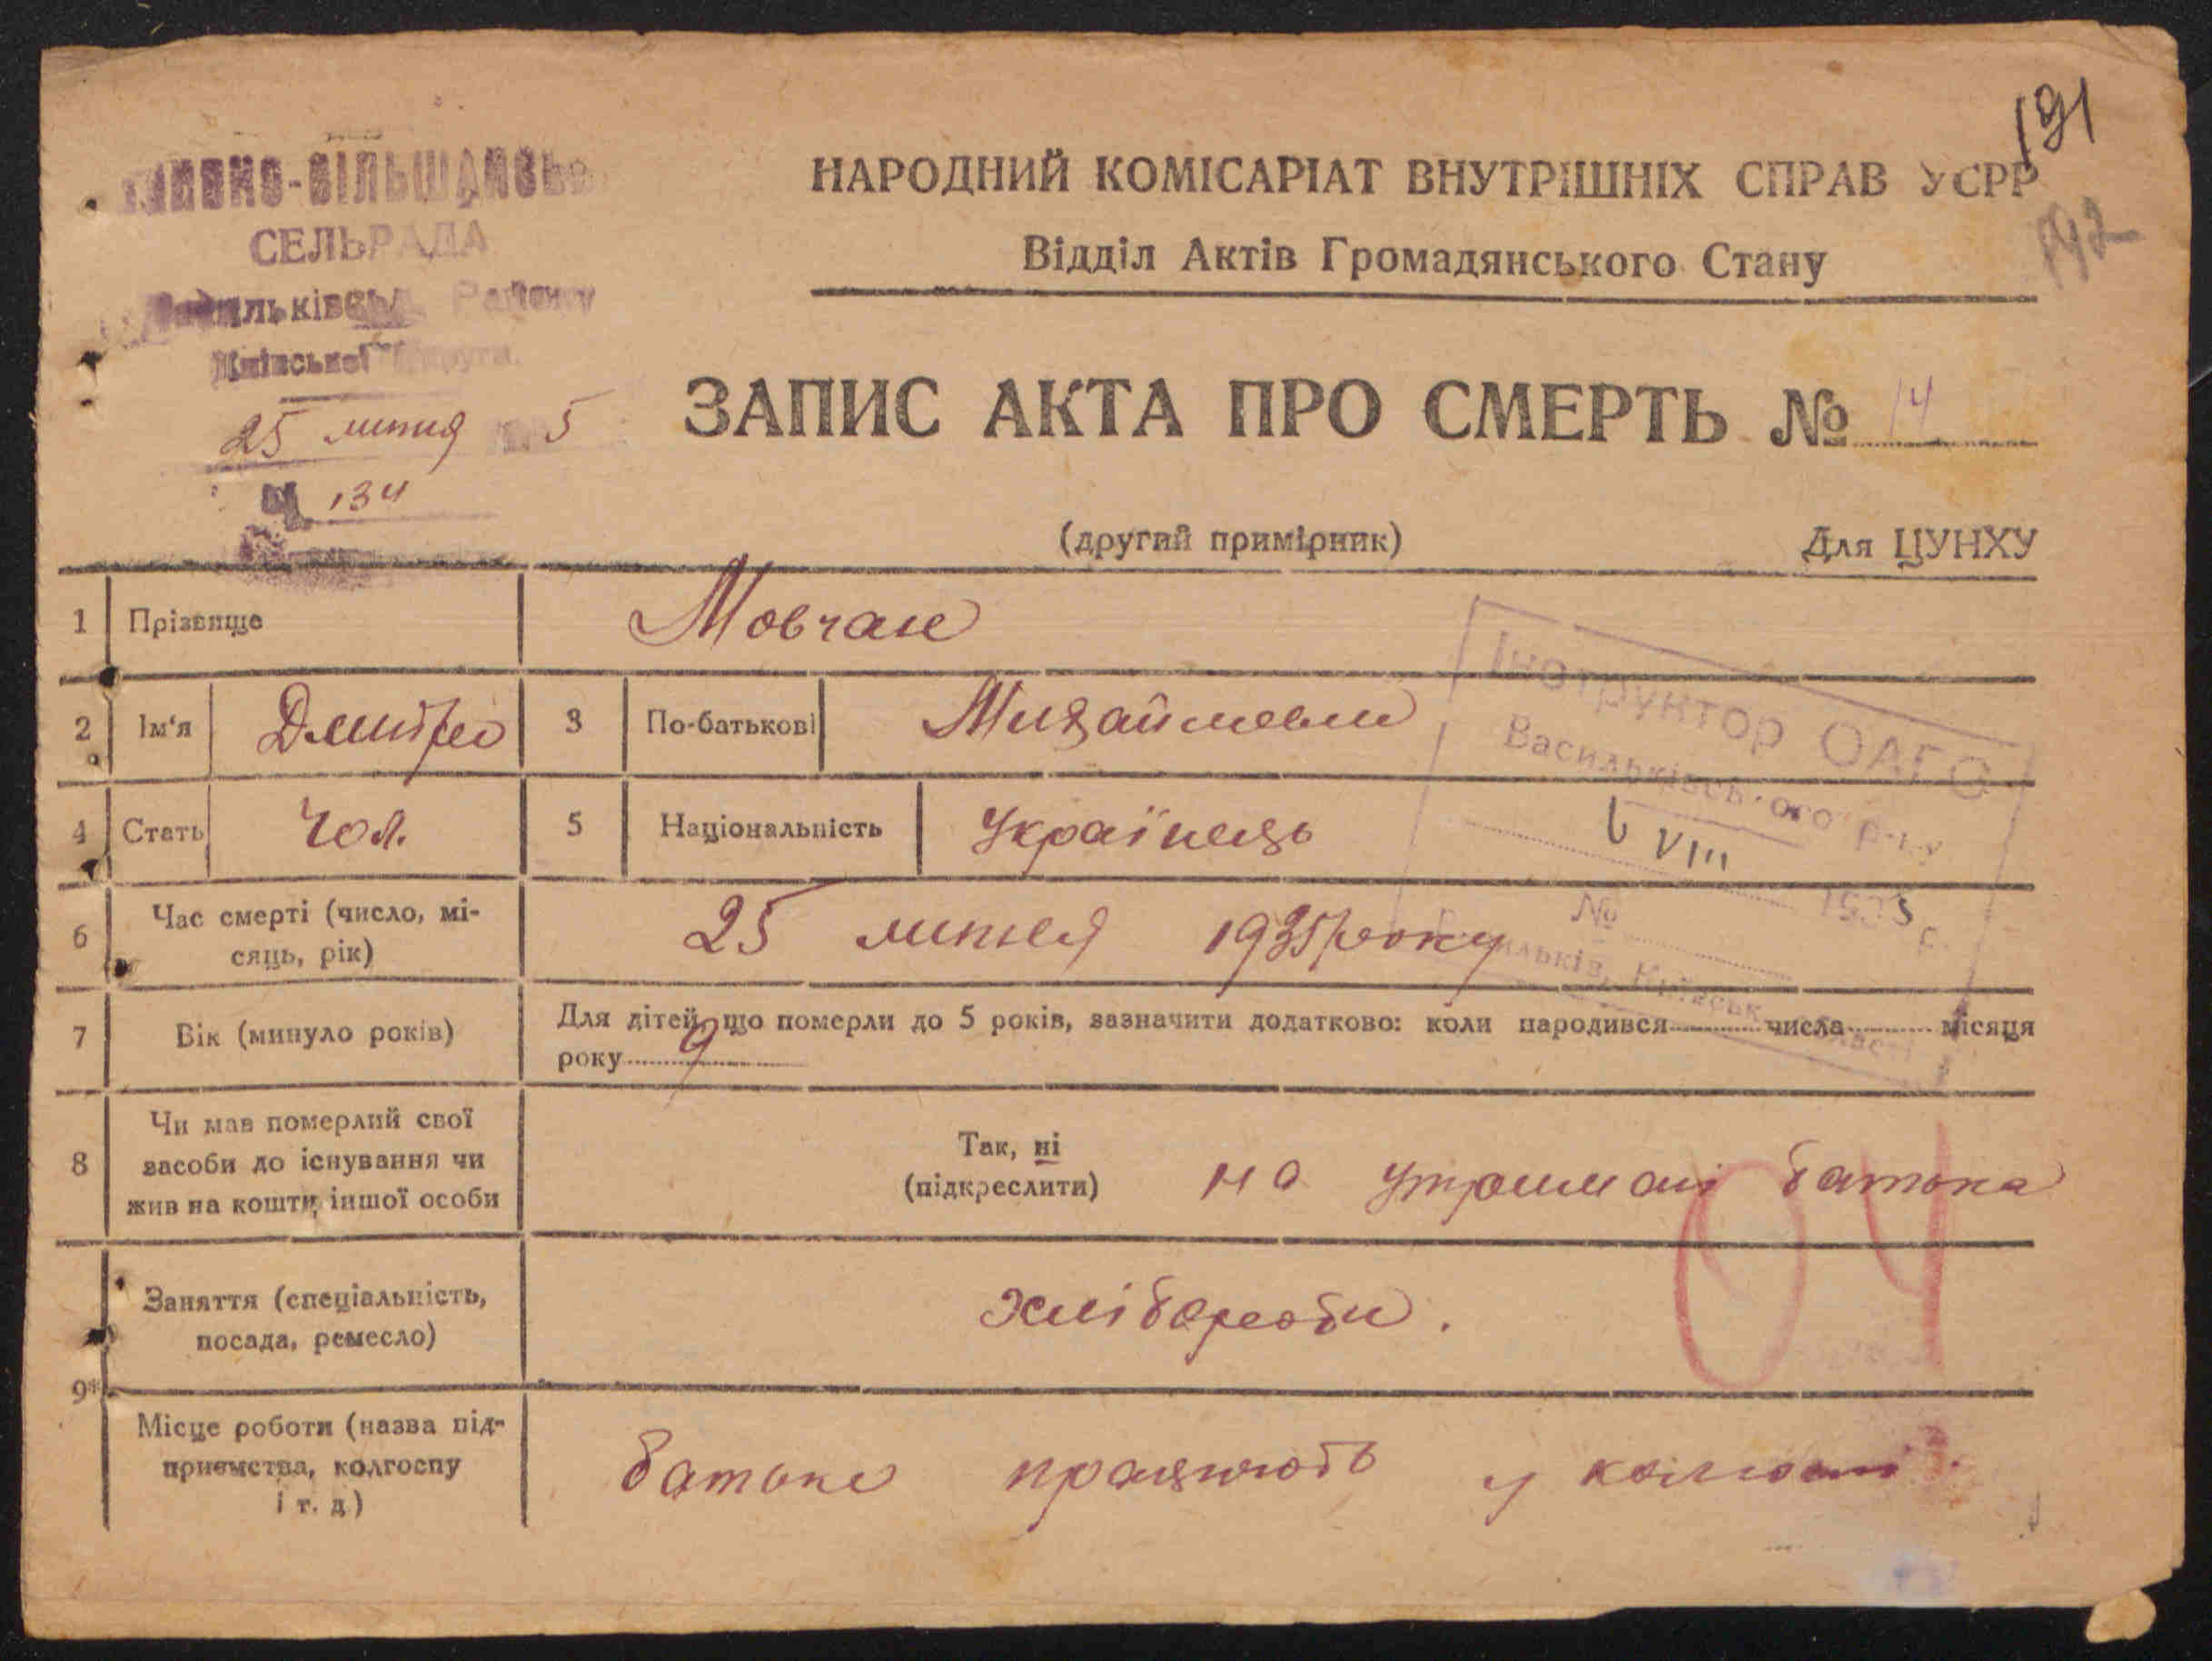 191
192
СЕЛЬРАДА
Васильківськ. Району
Київської Округи
25 липня 5
№ 134
НАРОДНИЙ КОМІСАРІАТ ВНУТРІШНІХ СПРАВ УСРР
Відділ Актів Громадянського Стану
ЗАПИС АКТА ПРО СМЕРТЬ № 14
(другий примірник) Для ЦУНХУ
1 Прізвище Мовчан
2 Ім'я Дмитро 3 По-батькові Михайлович
4 Стать Чол. 5 Національність Українець
Інструктор ОАГС
Васильківського р-ну
VIII
1935 р.
№
6 Час смерті (число, мі-
сяць, рік) 25 липня 1935 року
7 Вік (минуло років) Для дітей, що померли до 5 років, зазначити додатково: коли народився числа місяця
року 9
8 Чи мав померлий свої
засоби до існування чи
жив на кошти іншої особи
Так, ні
(підкреслити) на утримані батька
04
9* Заняття (спеціальність,
посада, ремесло) хлібороби.
Місце роботи (назва під-
приємства, колгоспу
і т. д) батьки працюють у колгоспі